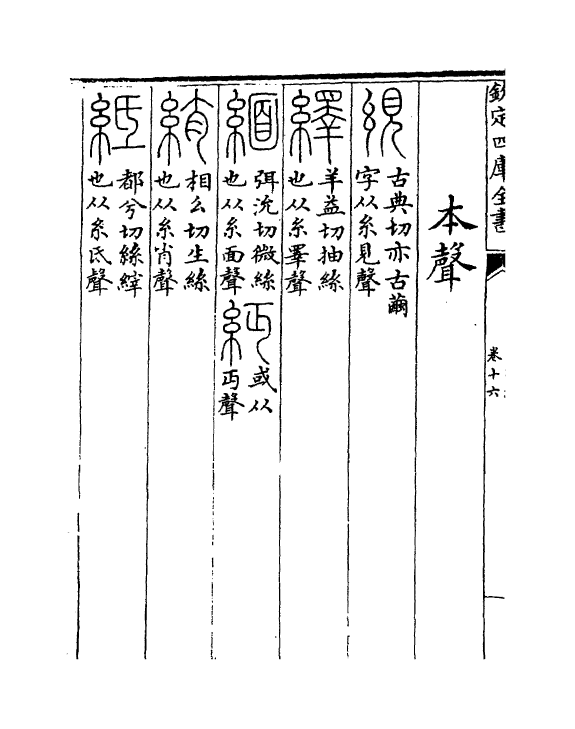 欽定四庫全書
卷十六
本聲
絸 古典切亦古繭字从糸見聲
繹 羊益切抽絲也从糸睪聲
緬 弭沇切微絲也从糸面聲 𥿋 或从丏聲
綃 相么切生絲也从糸肖聲
紙 都兮切絲縡也从糸氐聲